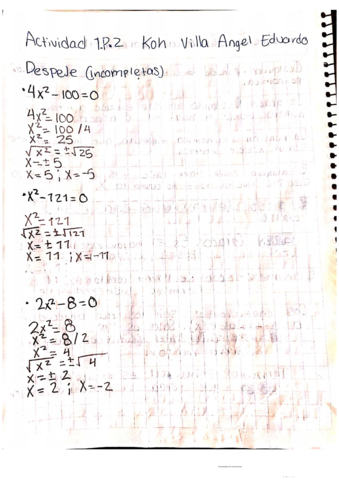 Actividad 1.P.2 Koh Villa Angel Eduardo
Despeje (incompletas)
• 4x²-100=0
4x²=100
x²=100/4
x²=25
√x²=±√25
x=±5
x=5; x=-5
• x²-121=0
x²=121
√x²=±√121
x=±11
x=11; x=-11
• 2x²-8=0
2x²=8
x²=8/2
x²=4
√x²=±√4
x=±2
x=2; x=-2